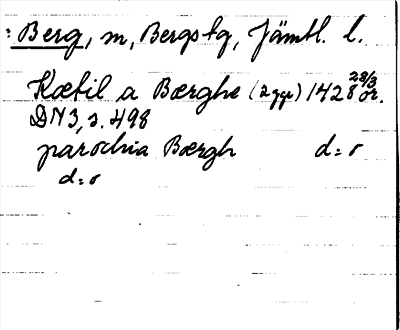 : Berg, m, Bergs tg, Jämtl. l.
Kætil a Bærghe (2 ggr) 1428 23/3 or.
DN 3, s. 498
parochia Bærgh d:o
d:o